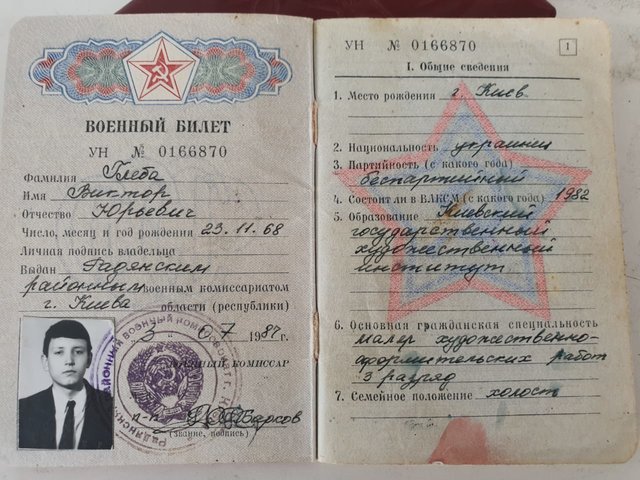 ВОЕННЫЙ БИЛЕТ
УН № 0166870
Фамилия Глеба
Имя Виктор
Отчество Юрьевич
Число, месяц и год рождения 23.11.68
Личная подпись владельца
Выдан Радянским
районным военным комиссариатом
г. Киева области (республики)
3 07 1987 г.
ВОЕННЫЙ КОМИССАР
п-к Барсов
(звание, подпись)
УН № 0166870 1
I. Общие сведения
1. Место рождения г. Киев
2. Национальность украинец
3. Партийность (с какого года)
беспартийный
4. Состоит ли в ВЛКСМ (с какого года) 1982
5. Образование Киевский
государственный
художественный
институт
6. Основная гражданская специальность
маляр художественно-
оформительских работ
3 разряд
7. Семейное положение холост